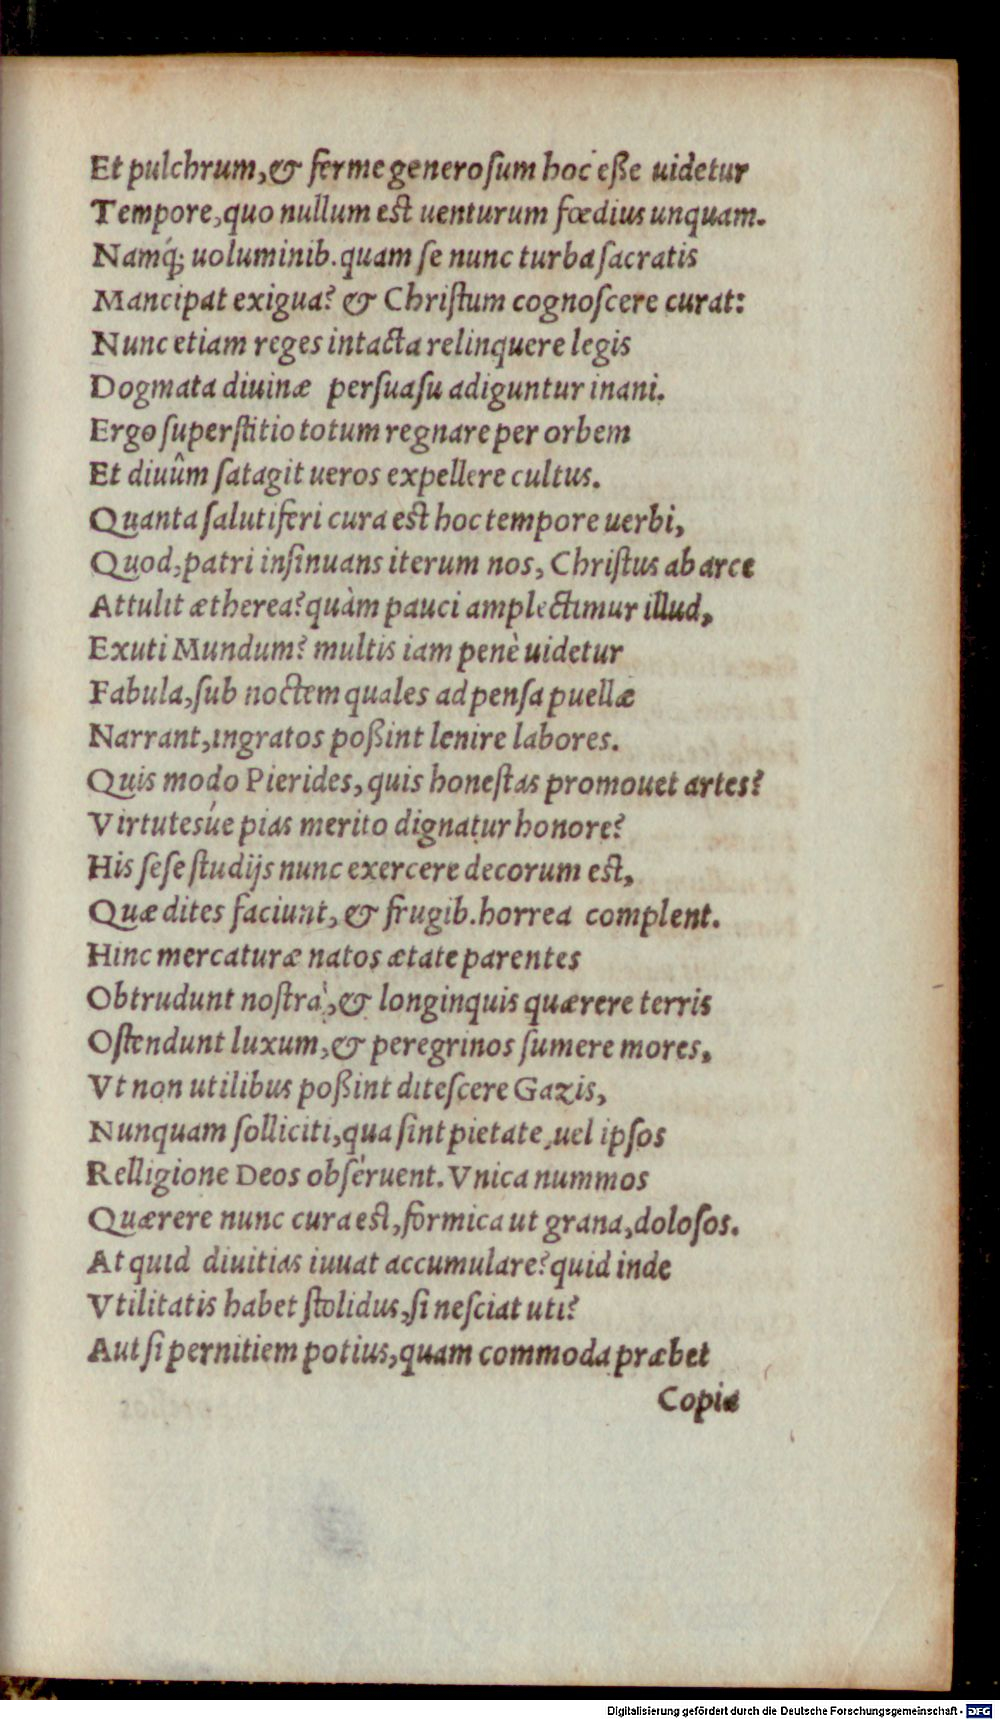 Et pulchrum, & ferme generoſum hoc eſſe uidetur
Tempore, quo nullum est uenturum fœdius unquam.
Namq́; uoluminib. quam ſe nunc turba ſacratis
Mancipat exigua? & Chriſtum cognoſcere curat:
Nunc etiam reges intacta relinquere legis
Dogmata diuinæ perſuaſu adiguntur inani.
Ergo ſuperſtitio totum regnare per orbem
Et diuûm ſatagit ueros expellere cultus.
Quanta ſalutiferi cura est hoc tempore uerbi,
Quod, patri inſinuans iterum nos, Chriſtus ab arce
Attulit ætherea? quàm pauci amplectimur illud,
Exuti Mundum? multis iam penè uidetur
Fabula, ſub noctem quales ad penſa puellæ
Narrant, ingratos poßint lenire labores.
Quis modo Pierides, quis honeſtas promouet artes?
Virtutesúe pias merito dignatur honore?
His ſeſe ſtudijs nunc exercere decorum est,
Quæ dites faciunt, & frugib. horrea complent.
Hinc mercaturæ natos ætate parentes
Obtrudunt noſtra, & longinquis quærere terris
Oſtendunt luxum, & peregrinos ſumere mores,
Vt non utilibus poßint diteſcere Gazis,
Nunquam ſolliciti, qua ſint pietate, uel ipſos
Relligione Deos obſeruent. Vnica nummos
Quærere nunc cura est, formica ut grana, doloſos.
At quid diuitias iuuat accumulare? quid inde
Vtilitatis habet ſtolidus, ſi neſciat uti?
Aut ſi pernitiem potius, quam commoda præbet
Copia
Digitalisierung gefördert durch die Deutsche Forschungsgemeinschaft - DFG